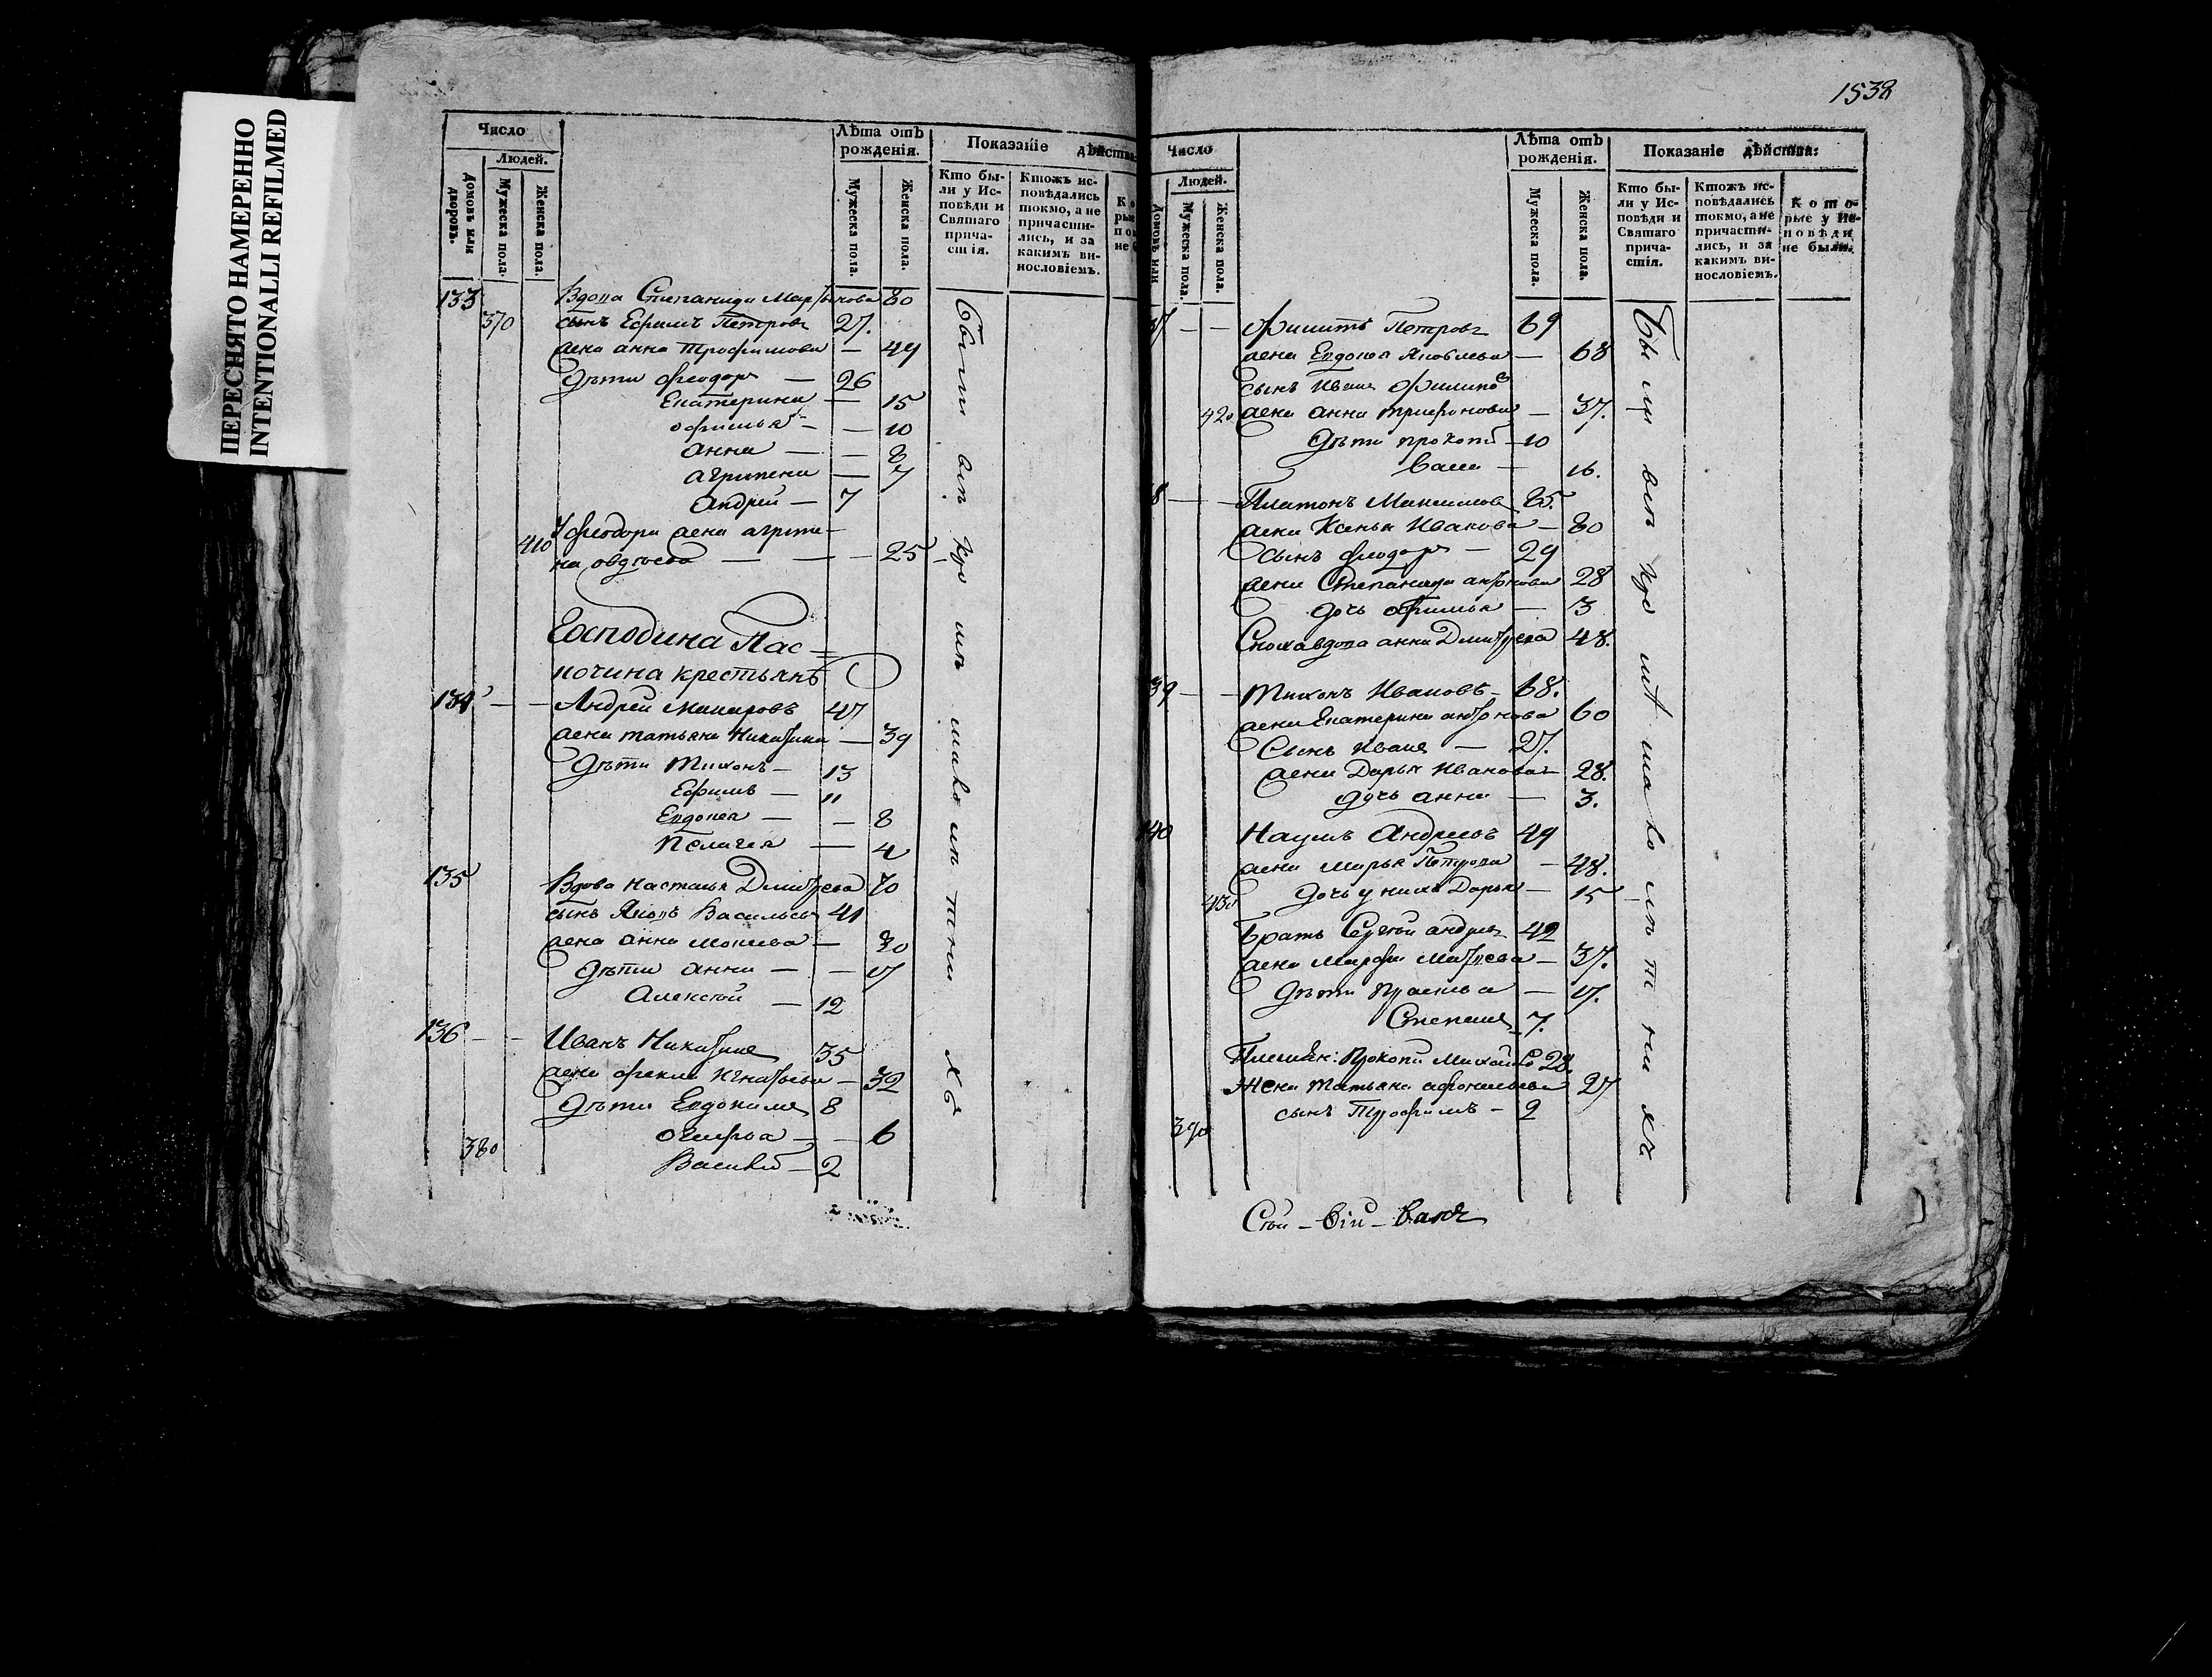 ПЕРЕСНЯТО НАМЕРЕННО
INTENTIONALLI REFILMED
Число
Людей.
Домовъ или дворовъ.
Мужеска пола.
Женска пола.
Лѣта отъ рожденія.
Мужеска пола.
Женска пола.
Показаніе дѣйства
Кто бы-
ли у Ис-
повѣди и
Святаго
прича-
стія.
Ктожъ ис-
повѣдались
токмо, а не
причасти-
лись, и за
какимъ ви-
нословіемъ.
133 Вдова Степанида Мартынова 80
370 сынъ Ефимъ Петровъ 27.
жена анна Трофимова — 49
дѣти Феодоръ — 26
Екатерина — 15
офимья — — 10
анна — — 8
агрипена — 7
андрей — 7
У феодора жена агрипе-
410 на овдѣева — — — 25
Господина Пас-
почина крестьянъ
134 — — Андрей Макаровъ 47
жена татьяна Никитина — 39
Дѣти Тихонъ — 13
Ефимъ — 11
Евдокея — — 8
Пелагея — 4
135 Вдова Настасья Дмитрева 70
сынъ Яковъ Васильевъ 41
жена анна мокеева — 30
дѣти анна — — 17
Алексѣй — 12
136 — — Иванъ Никитинъ 35
жена фекла Игнатьева — 32
Дѣти Евдокимъ 8
— — 6
380 Василей — 2
Были въ
1538
Число
Людей.
Домовъ или
Мужеска пола.
Женска пола.
Лѣта отъ рожденія.
Мужеска пола.
Женска пола.
Показаніе дѣйства:
Кто бы-
ли у Ис-
повѣди и
Святаго
прича-
стія.
Ктожъ ис-
повѣдались
токмо, а не
причасти-
лись, и за
какимъ ви-
нословіемъ.
Кото-
рые у Ис-
повѣди
не были.
37 — — Филипъ Петровъ 69
жена Евдокея Яковлева — 68
сынъ Иванъ Филипо
420 жена анна трифонова — 37.
дѣти прокопей — 10
16.
8 — — Платонъ Максимовъ 85.
жена Ксенья Иванова — 80
Сынъ феодоръ — 29
жена Степанида антонова 28
дочь офимья — 3
Сноха вдова анна Дмитрева 48.
39 — — Тихонъ Ивановъ — 68.
жена Екатерина антонова 60
Сынъ Иванъ — 27.
жена Дарья Иванова — 28.
дочь анна — 3.
140 Наумъ Андреевъ 49
жена марья Петрова — 48.
430 дочь у нихъ Дарья — 15
Братъ Сергѣй андреевъ 42
жена Марфа Матвеева — 37.
дѣти Прасковья — 17.
Степанъ 7.
Племян: Прокопей Михайло 28.
Жена татьяна афонасьева 27
сынъ Трофимъ — 2
390
Были въ